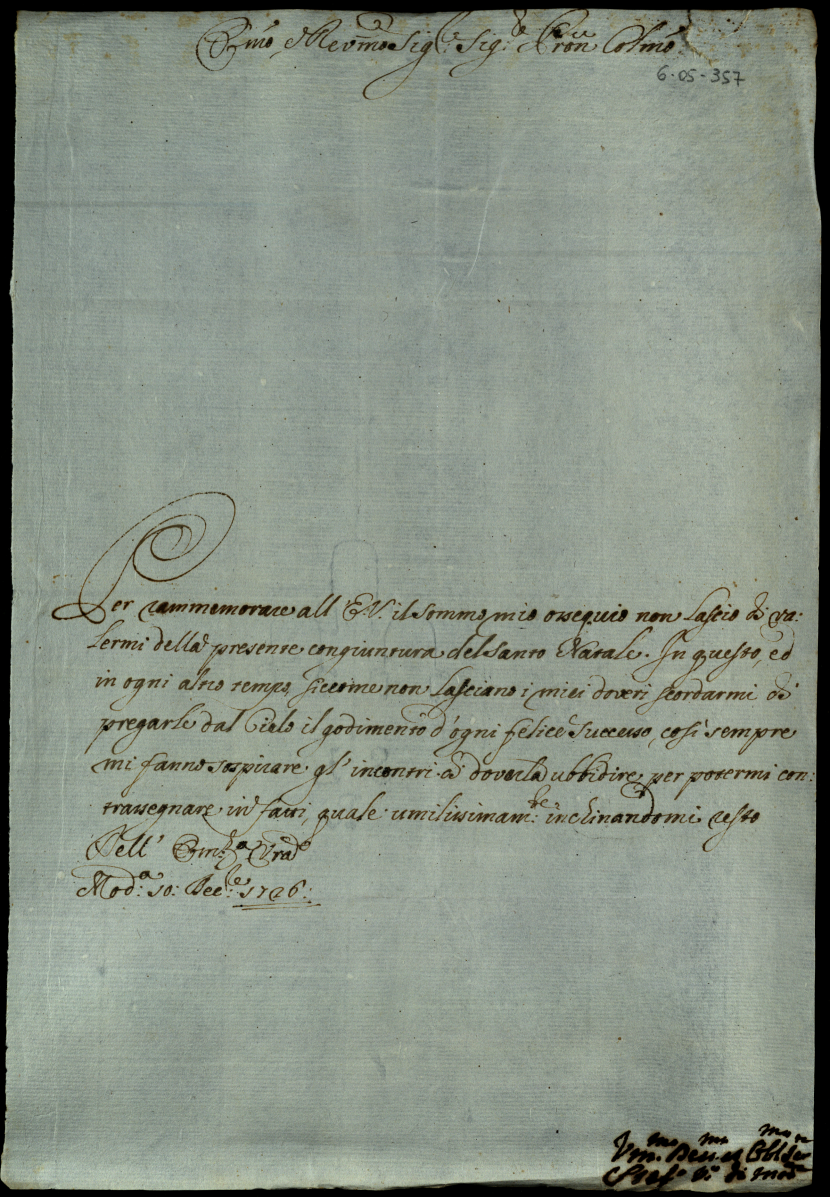 Emo, e Revmo Sig.re Sig.r e Pron Colmo
6-05-357
Per rammemorare all' E.V. il sommo mio ossequio non lascio di va:
lermi della presente congiuntura del Santo Natale. In questo, ed
in ogni altro tempo, siccome non lasciano i miei doveri scordarmi di
pregarle dal Cielo il godimento d'ogni felice successo, così sempre
mi fanno sospirare gl' incontri di doverla ubbidire, per potermi con:
trassegnare in fatti, quale umilissimam.te inchinandomi resto
Dell' Eminza Vra
Mod.a 10: Dec.re 1726:
Vm.mo Deu.mo et Obl.mo Ser
Stef.o V.o di Mod.a